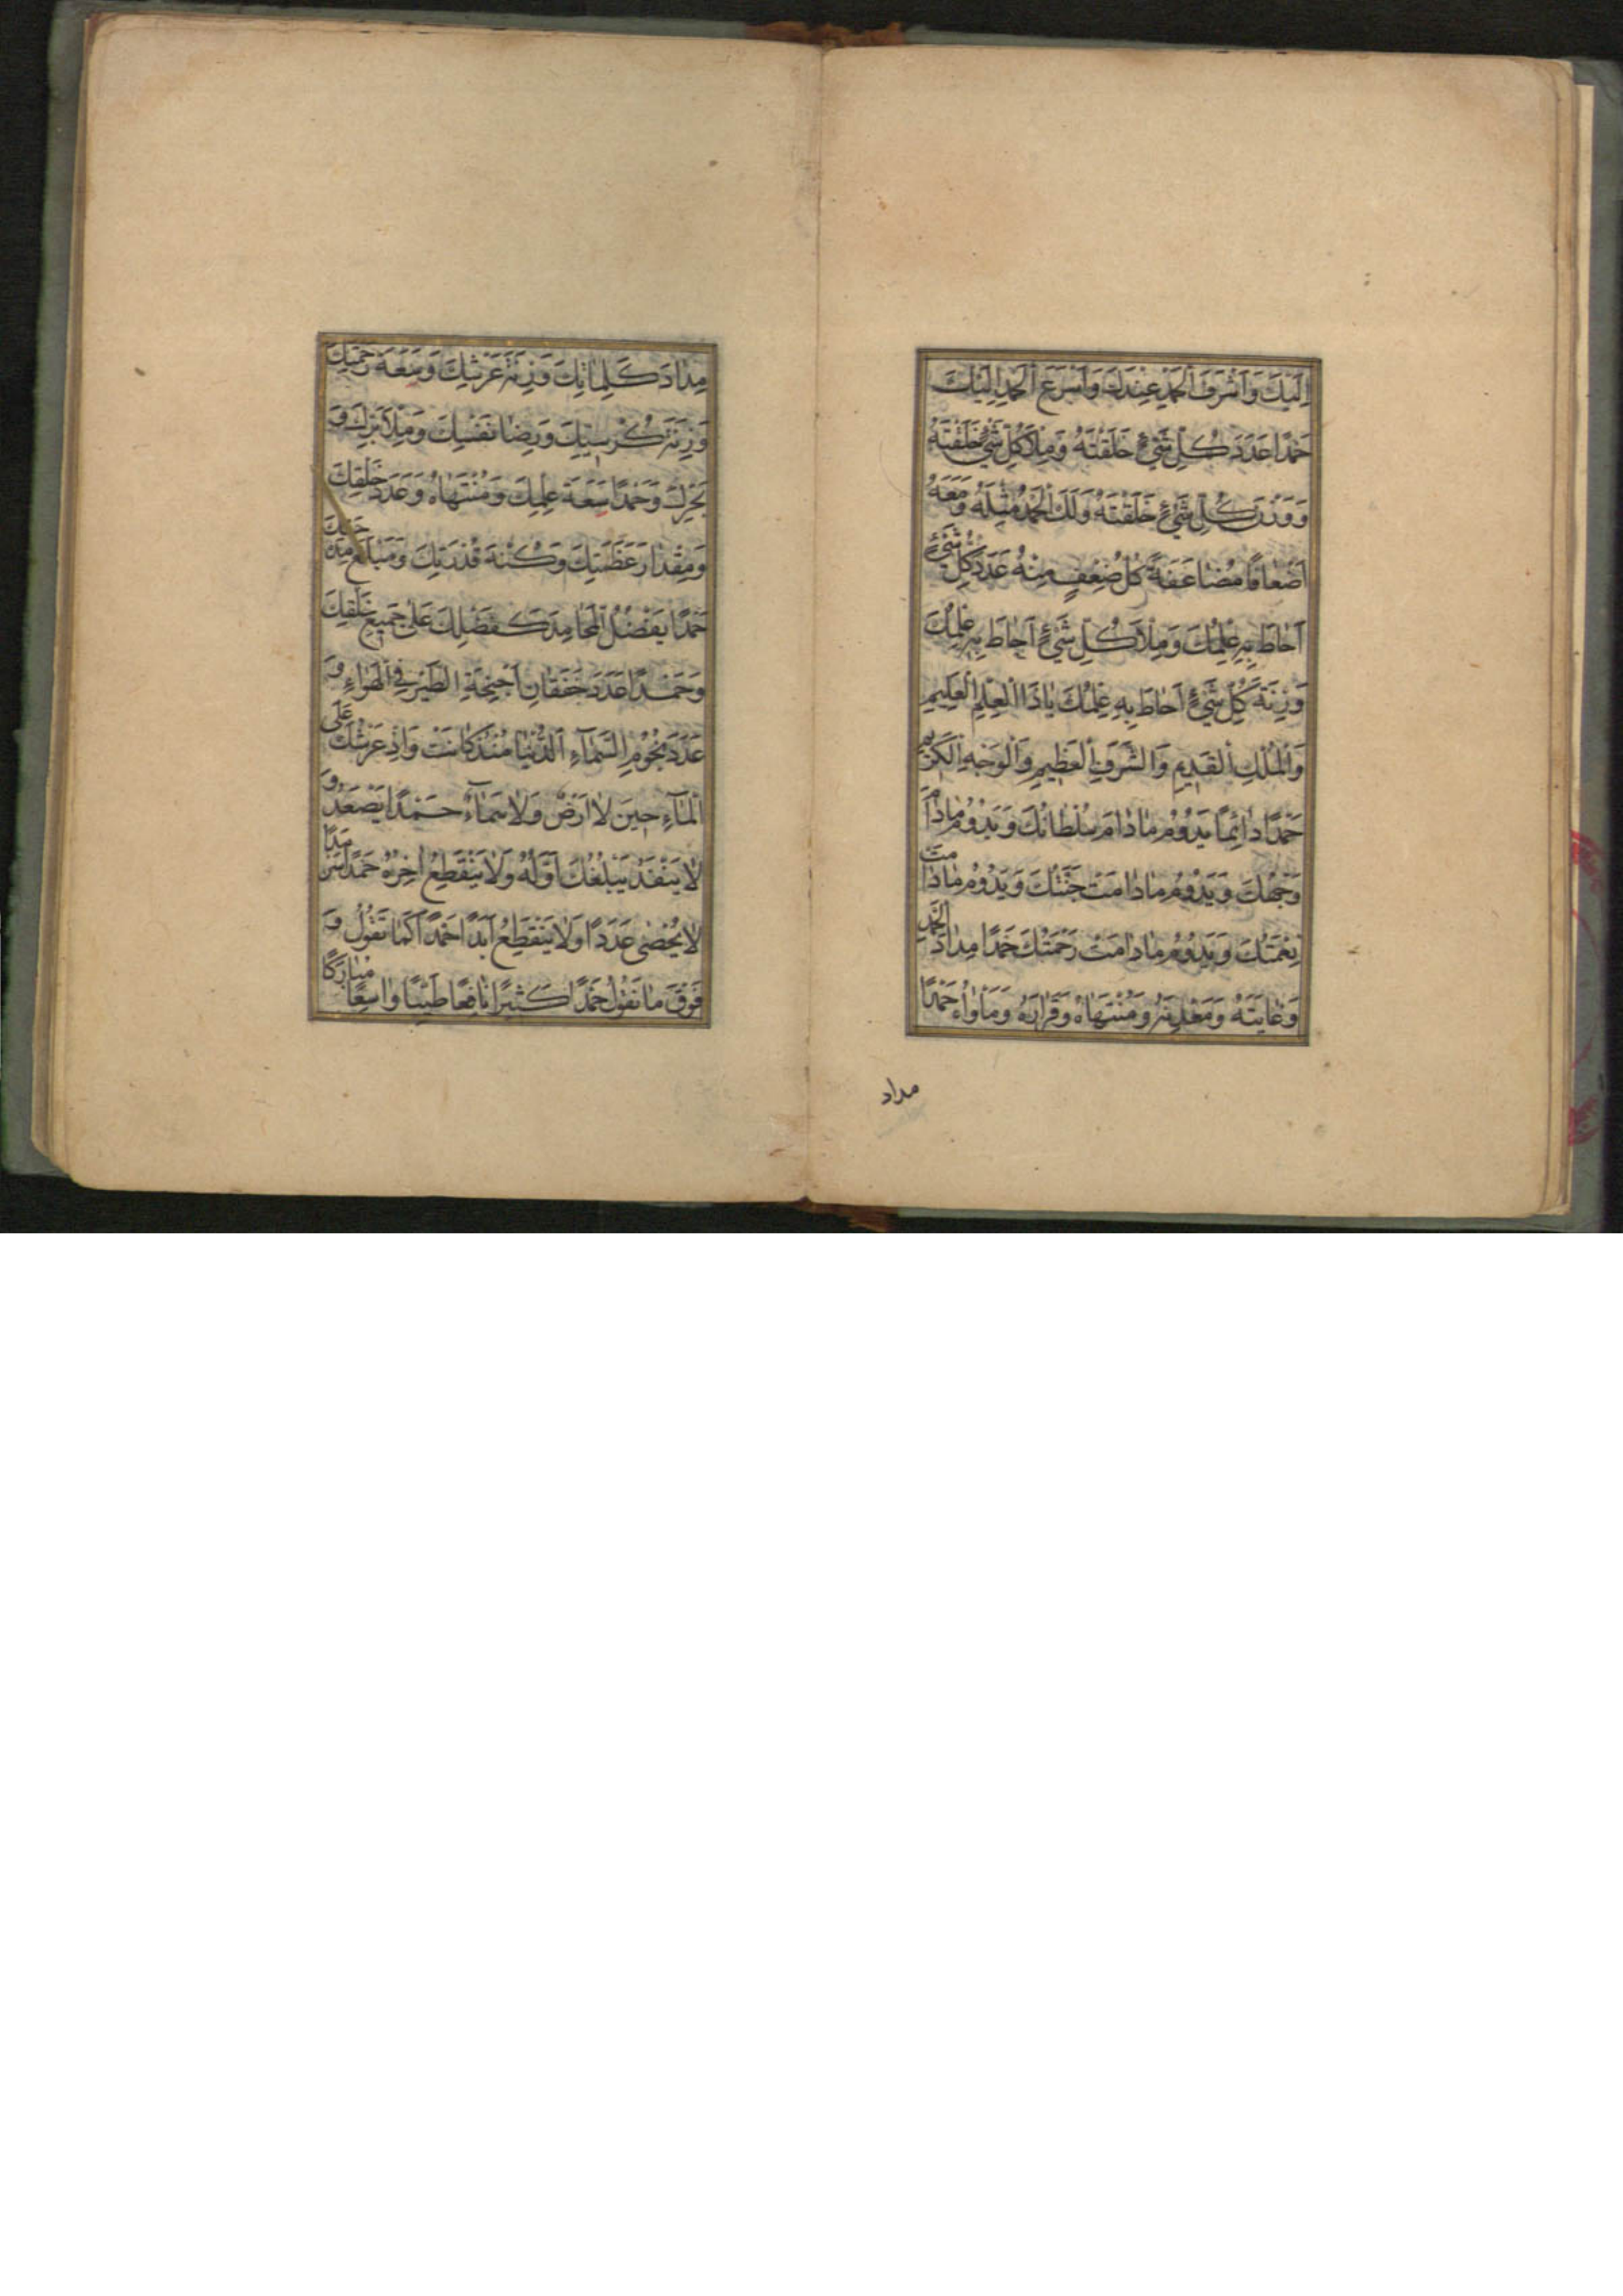 اِلَيْكَ وَاَشْرَفَ الْحَمْدِ عِنْدَكَ وَاَسْرَعَ الْحَمْدِ اِلَيْكَ
حَمْدًا عَدَدَ كُلِّ شَيْءٍ خَلَقْتَهُ وَمِلْأَ كُلِّ شَيْءٍ خَلَقْتَهُ
وَوَزْنَ كُلِّ شَيْءٍ خَلَقْتَهُ وَلَكَ الْحَمْدُ مِثْلَهُ وَمَعَهُ
اَضْعَافًا مُضَاعَفَةً كُلُّ ضِعْفٍ مِنْهُ عَدَدَ كُلِّ شَيْءٍ
اَحَاطَ بِهِ عِلْمُكَ وَمِلْأَ كُلِّ شَيْءٍ اَحَاطَ بِهِ عِلْمُكَ
وَزِنَةَ كُلِّ شَيْءٍ اَحَاطَ بِهِ عِلْمُكَ يَا ذَا الْعِلْمِ الْعَلِيمِ
وَالْمُلْكِ الْقَدِيمِ وَالشَّرَفِ الْعَظِيمِ وَالْوَجْهِ الْكَرِيمِ
حَمْدًا دَائِمًا يَدُوْمُ مَا دَامَ سُلْطَانُكَ وَيَدُوْمُ مَا دَامَ
وَجْهُكَ وَيَدُوْمُ مَا دَامَتْ جَنَّتُكَ وَيَدُوْمُ مَا دَامَتْ
نِعْمَتُكَ وَيَدُوْمُ مَا دَامَتْ رَحْمَتُكَ حَمْدًا مِدَادَ الْحَمْدِ
وَغَايَتَهُ وَمَعْدِنَهُ وَمُنْتَهَاهُ وَقَرَارَهُ وَمَأْوَاهُ حَمْدًا
مداد
مِدَادَ كَلِمَاتِكَ وَزِنَةَ عَرْشِكَ وَسَعَةَ رَحْمَتِكَ
وَزِنَةَ كُرْسِيِّكَ وَرِضَا نَفْسِكَ وَمِلْأَ بَرِّكَ وَ
بَحْرِكَ وَحَمْدًا سَعَةَ عِلْمِكَ وَمُنْتَهَاهُ وَعَدَدَ خَلْقِكَ
وَمِقْدَارَ عَظَمَتِكَ وَكُنْهَ قُدْرَتِكَ وَمَبْلَغَ مِدْحَتِكَ
حَمْدًا يَفْضُلُ الْمَحَامِدَ كَفَضْلِكَ عَلَى جَمِيعِ خَلْقِكَ
وَحَمْدًا عَدَدَ خَفَقَانِ اَجْنِحَةِ الطَّيْرِ فِي الْهَوَاءِ وَ
عَدَدَ نُجُوْمِ السَّمَاءِ الدُّنْيَا مُنْذُ كَانَتْ وَاِذْ عَرْشُكَ عَلَى
الْمَاءِ حِينَ لَا اَرْضٌ وَلَا سَمَاءٌ حَمْدًا يَصْعَدُ وَ
لَا يَنْفَدُ يَبْلُغُكَ اَوَّلُهُ وَلَا يَنْقَطِعُ اٰخِرُهُ حَمْدًا سَرْمَدًا
لَا يُحْصٰى عَدَدًا وَلَا يَنْقَطِعُ اَبَدًا حَمْدًا كَمَا تَقُوْلُ وَ
فَوْقَ مَا نَقُوْلُ حَمْدًا كَثِيْرًا نَافِعًا طَيِّبًا وَاسِعًا مُبَارَكًا